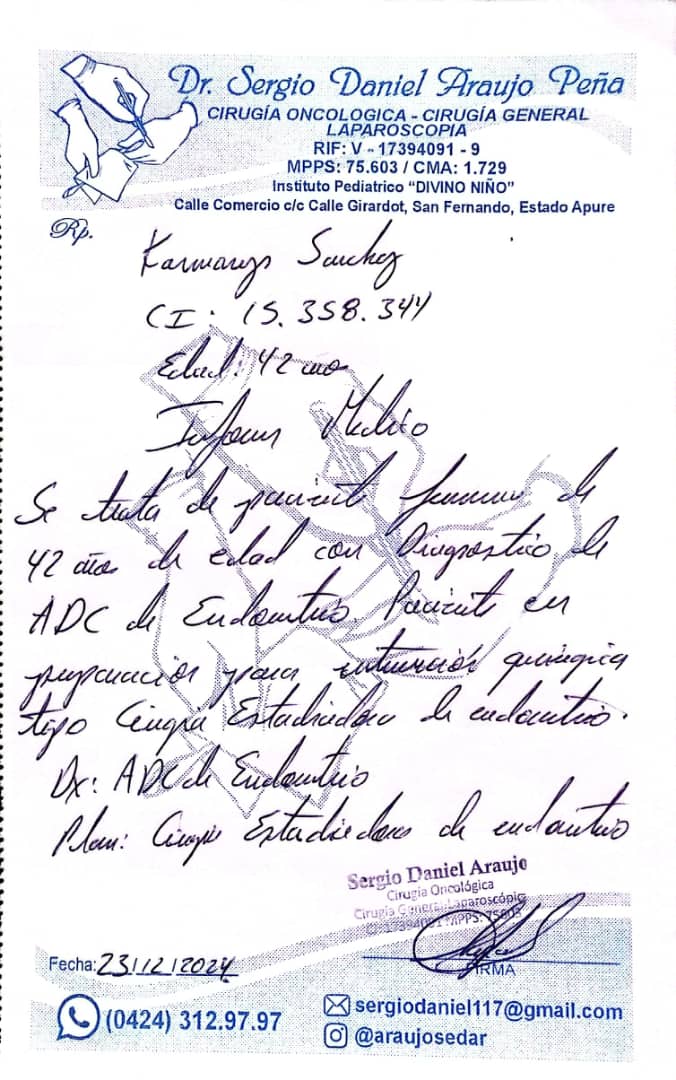 Dr. Sergio Daniel Araujo Peña
CIRUGÍA ONCOLOGICA - CIRUGÍA GENERAL
LAPAROSCOPIA
RIF: V - 17394091 - 9
MPPS: 75.603 / CMA: 1.729
Instituto Pediatrico "DIVINO NIÑO"
Calle Comercio c/c Calle Girardot, San Fernando, Estado Apure
Rp.
Sanchez
CI: 15.358.344
Edad: 42 años
Informe Medico
Se trata de paciente femenino de
42 años de edad con Diagnostico de
ADC de Endometrio. Paciente en
preparación para intervención quirúrgica
tipo Cirugía Estadiadora de endometrio.
Dx: ADC de Endometrio
Plan: Cirugía Estadiadora de endometrio
Sergio Daniel Araujo
Cirugía Oncológica
Cirugía General Laparoscópic
C.I: 17394091 MPPS: 75603
FIRMA
Fecha: 23/12/2024
(0424) 312.97.97
sergiodaniel117@gmail.com
@araujosedar